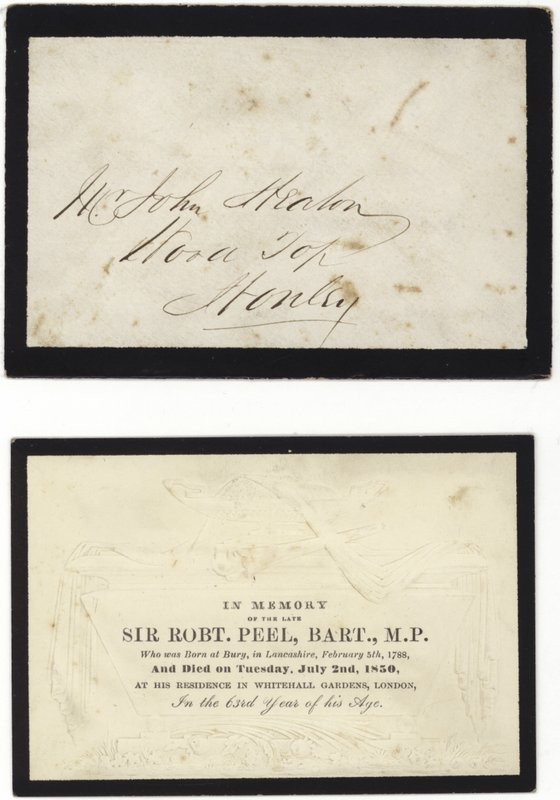 Mr. John Heaton
Wood Top
Honley
IN MEMORY
OF THE LATE
SIR ROBT. PEEL, BART., M.P.
Who was Born at Bury, in Lancashire, February 5th, 1788,
And Died on Tuesday, July 2nd, 1850,
AT HIS RESIDENCE IN WHITEHALL GARDENS, LONDON,
In the 63rd Year of his Age.